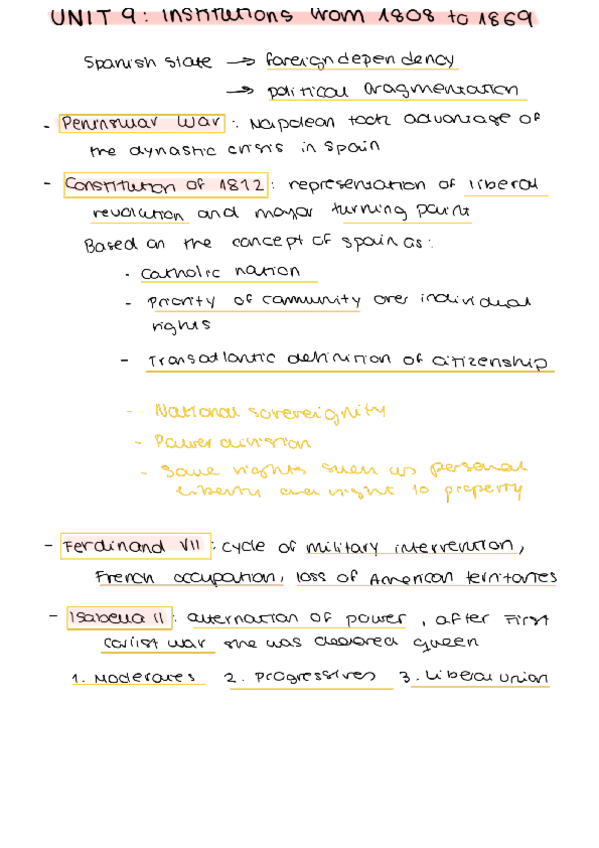 UNIT 9: Institutions from 1808 to 1869
Spanish state → foreign dependency
→ political fragmentation
- Peninsular War: Napoleon took advantage of
the dynastic crisis in Spain
- Constitution of 1812: representation of liberal
revolution and mayor turning point
Based on the concept of Spain as:
- Catholic nation
- Priority of community over individual
rights
- Transatlantic definition of citizenship
- National sovereignity
- Power division
- Some rights such as personal
liberty and right to property
- Ferdinand VII: cycle of military intervention,
French occupation, loss of American territories
- Isabella II: alternation of power, after First
Carlist war she was declared queen
1. Moderates 2. Progressives 3. Liberal union